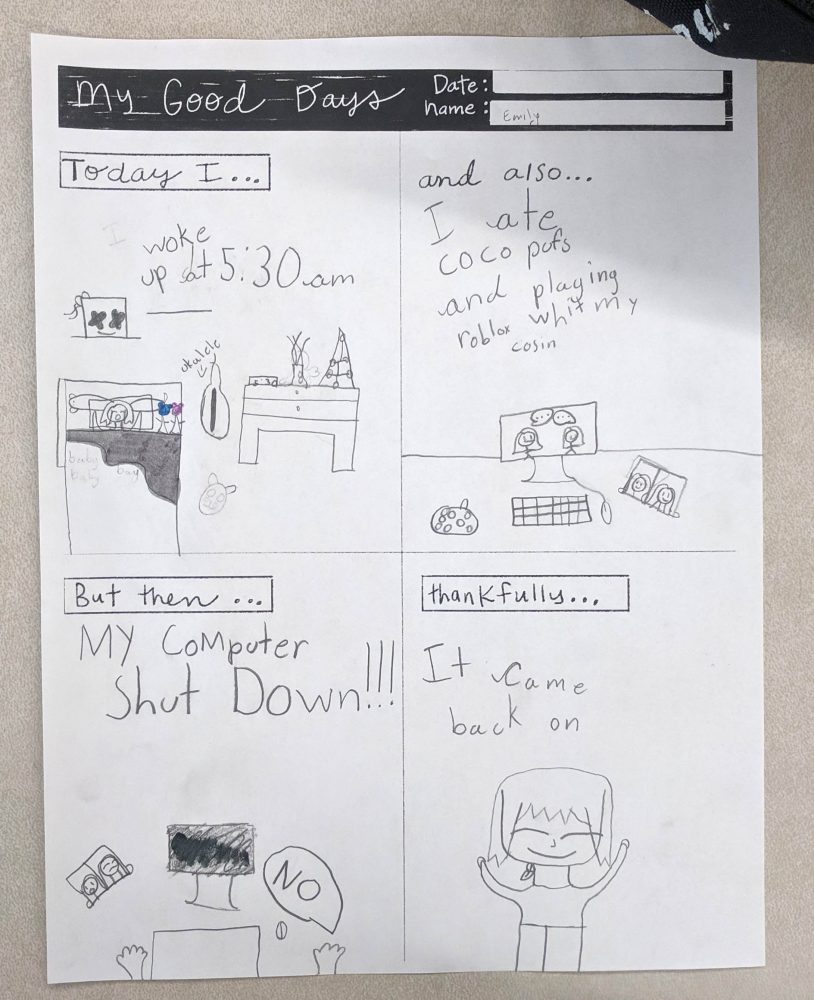 My Good Days
Date:
name:
Emily
Today I...
I woke
up at 5:30 am
ukalele
baby
baby
bay
and also...
I ate
coco pufs
and playing
roblox whit my
cosin
But then ...
MY COMPuter
Shut Down!!!
NO
thankfully...
It came
back on